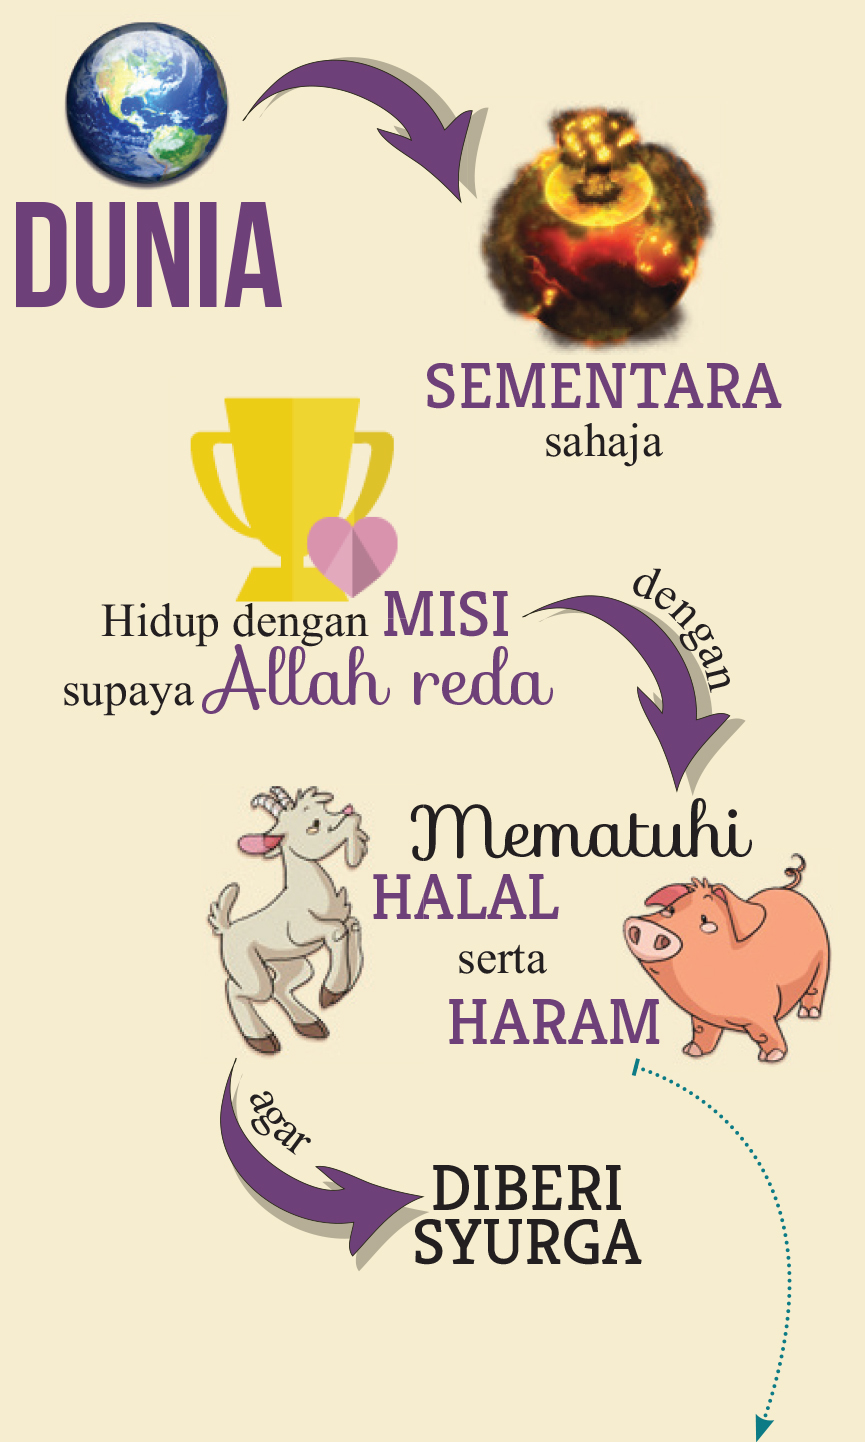 DUNIA
SEMENTARA
sahaja
Hidup dengan MISI
supaya Allah reda
dengan
Mematuhi
HALAL
serta
HARAM
agar
DIBERI
SYURGA